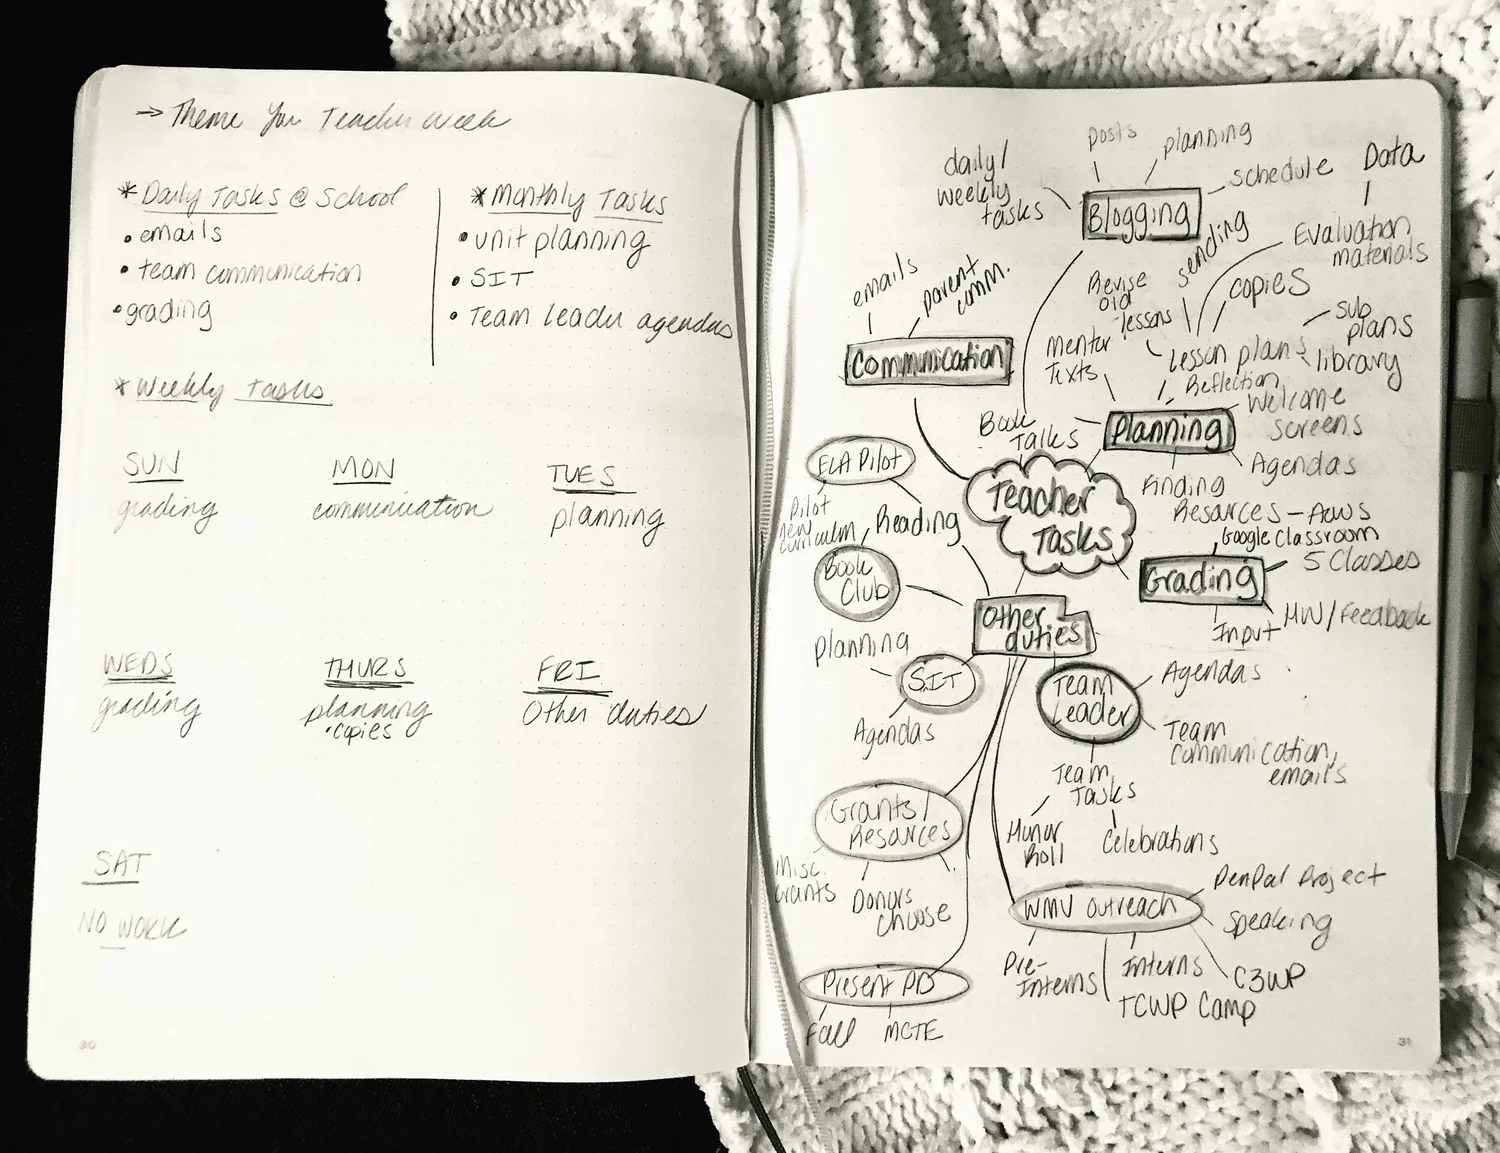 → Theme Your Teacher Week
* Daily Tasks @ School
• emails
• team communication
• grading
* Monthly Tasks
• unit planning
• SIT
• Team Leader agendas
* Weekly Tasks
SUN
grading
MON
communication
TUES
planning
WEDS
grading
THURS
planning
• copies
FRI
Other duties
SAT
NO WORK
30
posts
planning
daily/
weekly
tasks
schedule
Blogging
Data
Evaluation
materials
sending
copies
Revise
old
lessons
sub
plans
library
Lesson plans
Reflection
Mentor
Texts
emails
parent
comm.
Communication
Book
Talks
Planning
Welcome
Screens
Agendas
Finding
Resources - ACWS
Teacher
Tasks
ELA Pilot
Pilot
new
curriculum
Reading
Book
Club
Google Classroom
5 Classes
Grading
HW/Feedback
Input
Other
duties
Planning
SIT
Agendas
Team
Leader
Agendas
Team
Communication,
emails
Team
Tasks
Honor
Roll
Celebrations
Grants/
Resources
Misc.
Grants
Donors
Choose
WMV Outreach
PenPal Project
Speaking
C3WP
Interns
TCWP Camp
Pre-
Interns
Present PD
Fall
MCTE
31